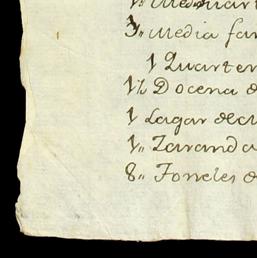 3,, Media fan
1 Quarter
1½ Docena d
1 Lagar de
1,, Zaranda
8,, Toneles d